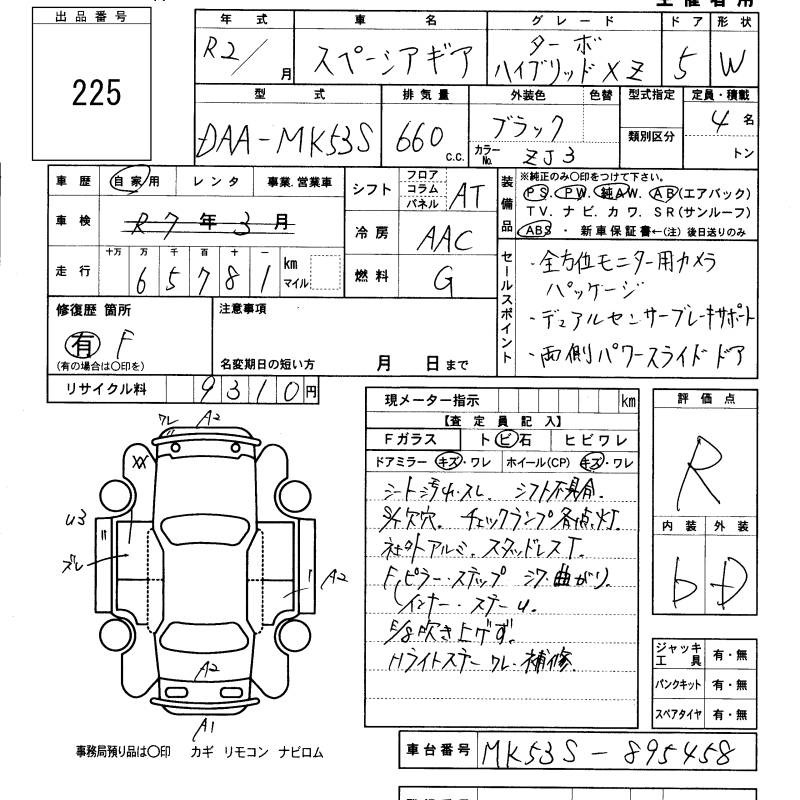 出品番号
225
年式 車名 グレード ドア 形状
R2/ 月 スペーシアギア ターボ
ハイブリッドXZ 5 W
型式 排気量 外装色 色替 型式指定 定員・積載
DAA-MK53S 660 c.c. ブラック 4 名
カラーNo. ZJ3 類別区分 トン
車歴 自家用 レンタ 事業.営業車
シフト フロア コラム パネル AT
車検 R7年3月
冷房 AAC
走行 十万 万 千 百 十 一
65781 km マイル
燃料 G
装備品 ※純正のみ○印をつけて下さい。
PS. PW. 純AW. AB(エアバック)
TV. ナビ. カワ. SR(サンルーフ)
ABS ・ 新車保証書←(注)後日送りのみ
セールスポイント
・全方位モニター用カメラ
パッケージ
・デュアルセンサーブレーキサポート
・両側パワースライドドア
修復歴 箇所
有 F
(有の場合は○印を)
注意事項
名変期日の短い方 月 日まで
リサイクル料 9310円
現メーター指示 km
【査定員記入】
Fガラス トビ石 ヒビワレ
ドアミラー キズ・ワレ ホイール(CP) キズ・ワレ
シート汚れ・スレ. シフト不具合.
S/C欠穴. チェックランプ各点灯.
社外アルミ. スタッドレスT.
F,ピラー・ステップ シワ曲がり.
インナー・ステーU.
E/g吹き上げず.
Hライトステー ワレ・補修.
評価点
R
内装 外装
b D
ジャッキ工具 有・無
パンクキット 有・無
スペアタイヤ 有・無
ワレ A2
XX
U3
ズレ
A2
A2
A1
事務局預り品は○印 カギ リモコン ナビロム
車台番号 MK53S-895458